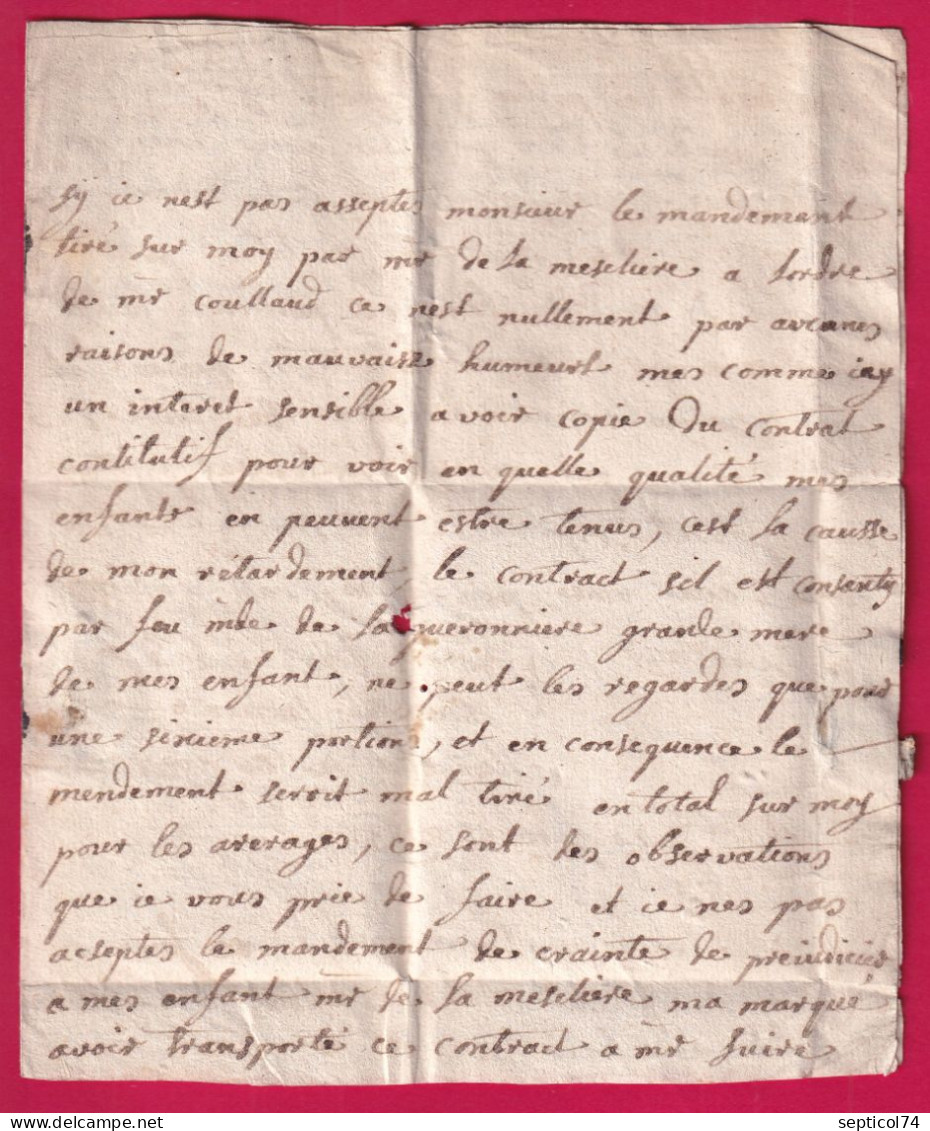 sy ie nest pas asseptes monsieur le mandemant
tiré sur moy par mr de la mescliere a lordre
de mr coullaud ce nest nullement par aucunes
raisons de mauvaise humeurt mes comme iay
un interet sensible avoir copie du contrat
contitutif pour voir en quelle qualité mes
enfants en peuvent estre tenus, cest la causse
de mon retardement, le contract sil est consenty
par feu mde de la queronniere grande mere
de mes enfant, ne peut les regardes que pour
une sixieme portions, et en consequence le
mendement seroit mal tiré en total sur moy
pour les arerages, ce sont des observations
que ie vous prie de faire et ie nes pas
acseptes le mandement de crainte de preiudicier
a mes enfant mr de la mescliere ma marque
avoir transporté ce contract a mr suire
septicol74